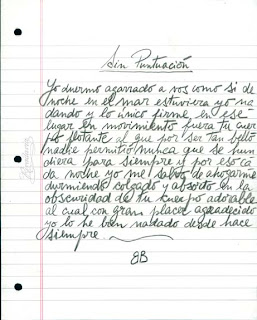 Sin Puntuación
Yo duermo agarrado a vos como si de
noche en el mar estuviera yo na
dando y lo único firme, en ese
lugar en movimiento fuera tu cuer
po flotante al que por ser tan bello
nadie permitió nunca que se hun
diera para siempre y por eso ca
da noche yo me salvo de ahogarme
durmiendo colgado y absorto en la
obscuridad de tu cuerpo adorable
al cual con gran placer agradecido
yo lo he bien nadado desde hace
siempre